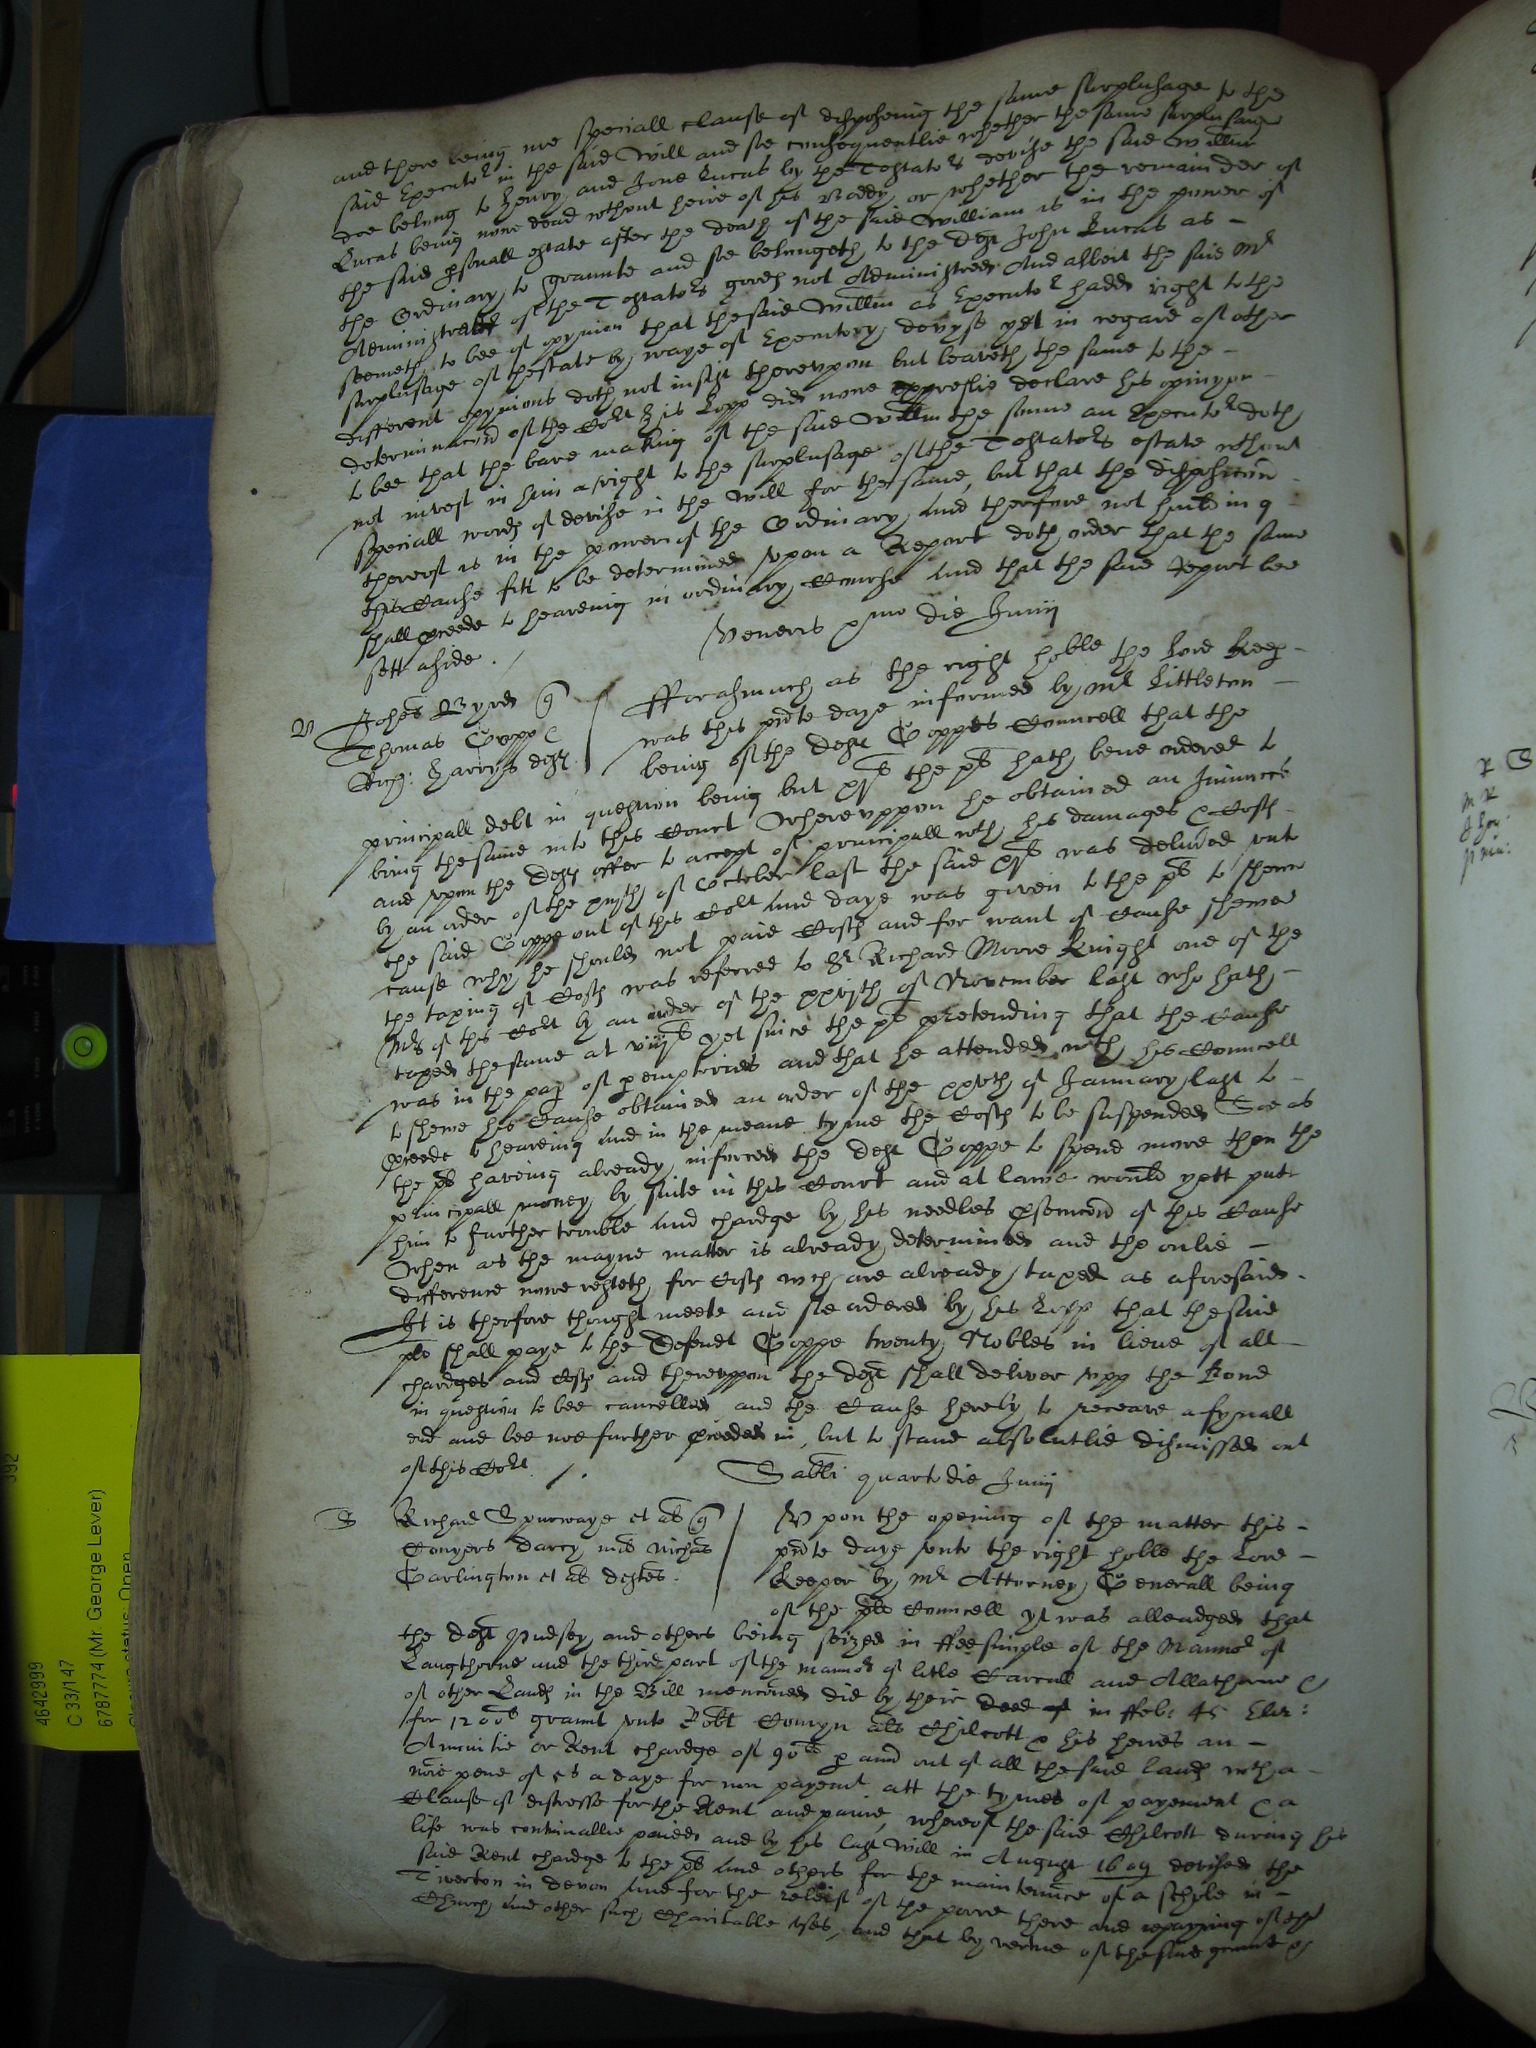 and there being noe speciall clause of disposeing the same surplusage to the
said Executor in the said Will and soe consequentlie whether the same surplusage
doe belong to Henry and Jone Lucas by the Testators devise the said Willm
Lucas being nowe dead without heire of his Boddy, or whether the remainder of
the said psonall estate after the death of the said William is in the power of
the Ordinary to graunte and soe belongeth to the deft John Lucas as –
Administrator of the Testators goods not Administred And albeit the said Mr
seemeth to bee of opynion that the said Willm as Executor hadd right to the
surplusage of thestate by waye of Executory devyse yet in regard of other
different opynions doth not insist thereuppon but leaveth the same to the –
determinacon of the Cort His Lopp did nowe expresslie declare his opinyon –
to bee that the bare making of the said Willm the sonne an Executor doth
not invest in him a right to the surplusage of the Testators estate without
speciall words of devise in the Will for the same, but that the disposicon –
thereof is in the power of the Ordinary, And therfore not houlding
this Cause fitt to be determined upon a Report doth order that the same
shall pceede to heareing in ordinary Course And that the said Report bee
sett aside.
Veneris pmo die Junij
Johes Byrd q
Thomas Coppe &
Harrys deft
Fforasmuch as the right hoble the Lord Keep –
was this pnte daye informed by Mr Littleton –
being of the deft Coppes Councell that the
principall debt in question being but the plt hath bene ordered to
bring the same into this Court Whereuppon he obtained an Iniunccon
and upon the defts offer to accept of principall with his damages & Costs
by an order of the of October last the said was delivered unto
the said Coppe out of this Cort And daye was given to the plt to shewe
cause why he should not paie Costs and for want of Cause shewed
the taxing of Costs was referred to Sr Richard Moore Knight one of the
Mrs of this Cort by an order of the of November last who hath –
taxed the same at yet since the plt pretending that the Cause
was in the pap of peremptories and that he attended with his Councell
to shewe his Cause obtained an order of the of January last to –
pceede to heareing And in the meane tyme the Costs to be suspended Soe as
the plt haveing already inforced the deft Coppe to spend more then the
principall money by suite in this Court and at lawe would yett putt
him to further trouble And chardge by his needles psecucon of this Cause
When as the mayne matter is already determined and the onlie –
difference nowe resteth for Costs wch are already taxed as aforesaid.
It is therfore thought meete and soe ordered by his Lopp that the said
plt shall paye to the Defendt Coppe twenty Nobles in liewe of all –
chardges and Costs and thereuppon the deft shall deliver upp the Bond
in question to bee cancelled and the Cause hereby to receave a fynall
end and bee noe further pceeded in, but to stand absolutlie dismissed out
of this Cort.
Sabbi quarto die Junij
S Richard Spurwaye et al q
Conyers Darcy mil Nichas
Carlington et al deftes.
Upon the opening of the matter this –
pnte daye unto the right hoble the Lord –
Keeper by Mr Attorney Generall being
of the plts Councell yt was alleadged that
the deft Pudsey and others being seized in ffee simple of the Mannor of
Langthorne and the third part of the mannor of litle and Allathorne &
of other Lands in the Bill menconed did by their deed in ffeb: 45 Eliz:
for 1200l graunt unto Robt Comyn als Chilcott & his heires an –
Annuitie or Rent chardge of 90l p annu out of all the said lands with a –
noie pene of 5l a daye for non payemt att the tymes of payement & a
Clause of distresse for the Rent and paine, whereof the said Chilcott during his
life was continuallie paied and by his last Will in August 1609 devised the
said Rent chardge to the plts And others for the maintennce of a Schole in –
Tiverton in Devon And for the releif of the poore there and repayring of the
Church And other such Charitable uses, and that by vertue of the said graunt &